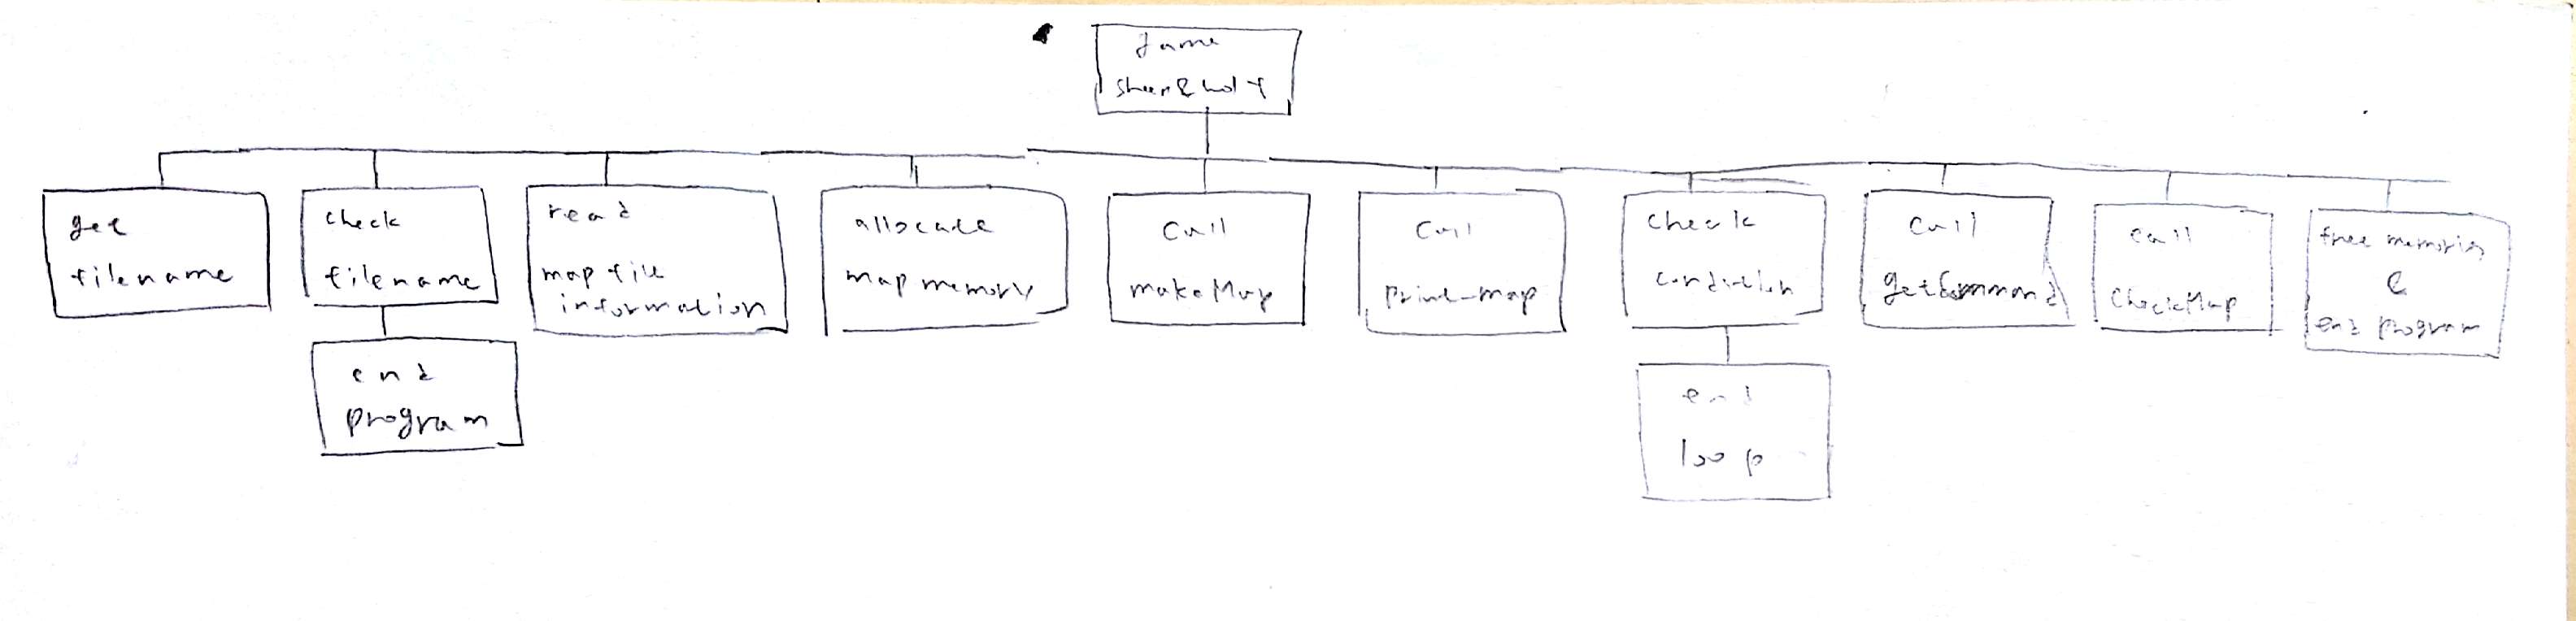 game
sheep & wolf
get
filename
check
filename
end
program
read
map file
information
allocate
map memory
call
makeMap
call
print-map
check
condition
end
loop
call
getCommand
call
checkMap
free memories
&
end program